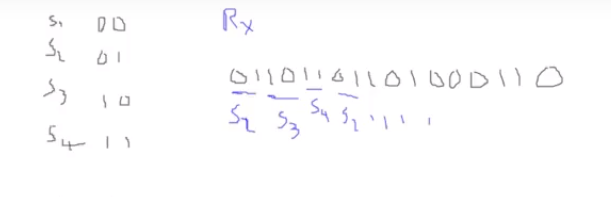 S1 00
S2 01
S3 10
S4 11
Rx
01101101101000110
S2 S3 S4 S2 , , , ,